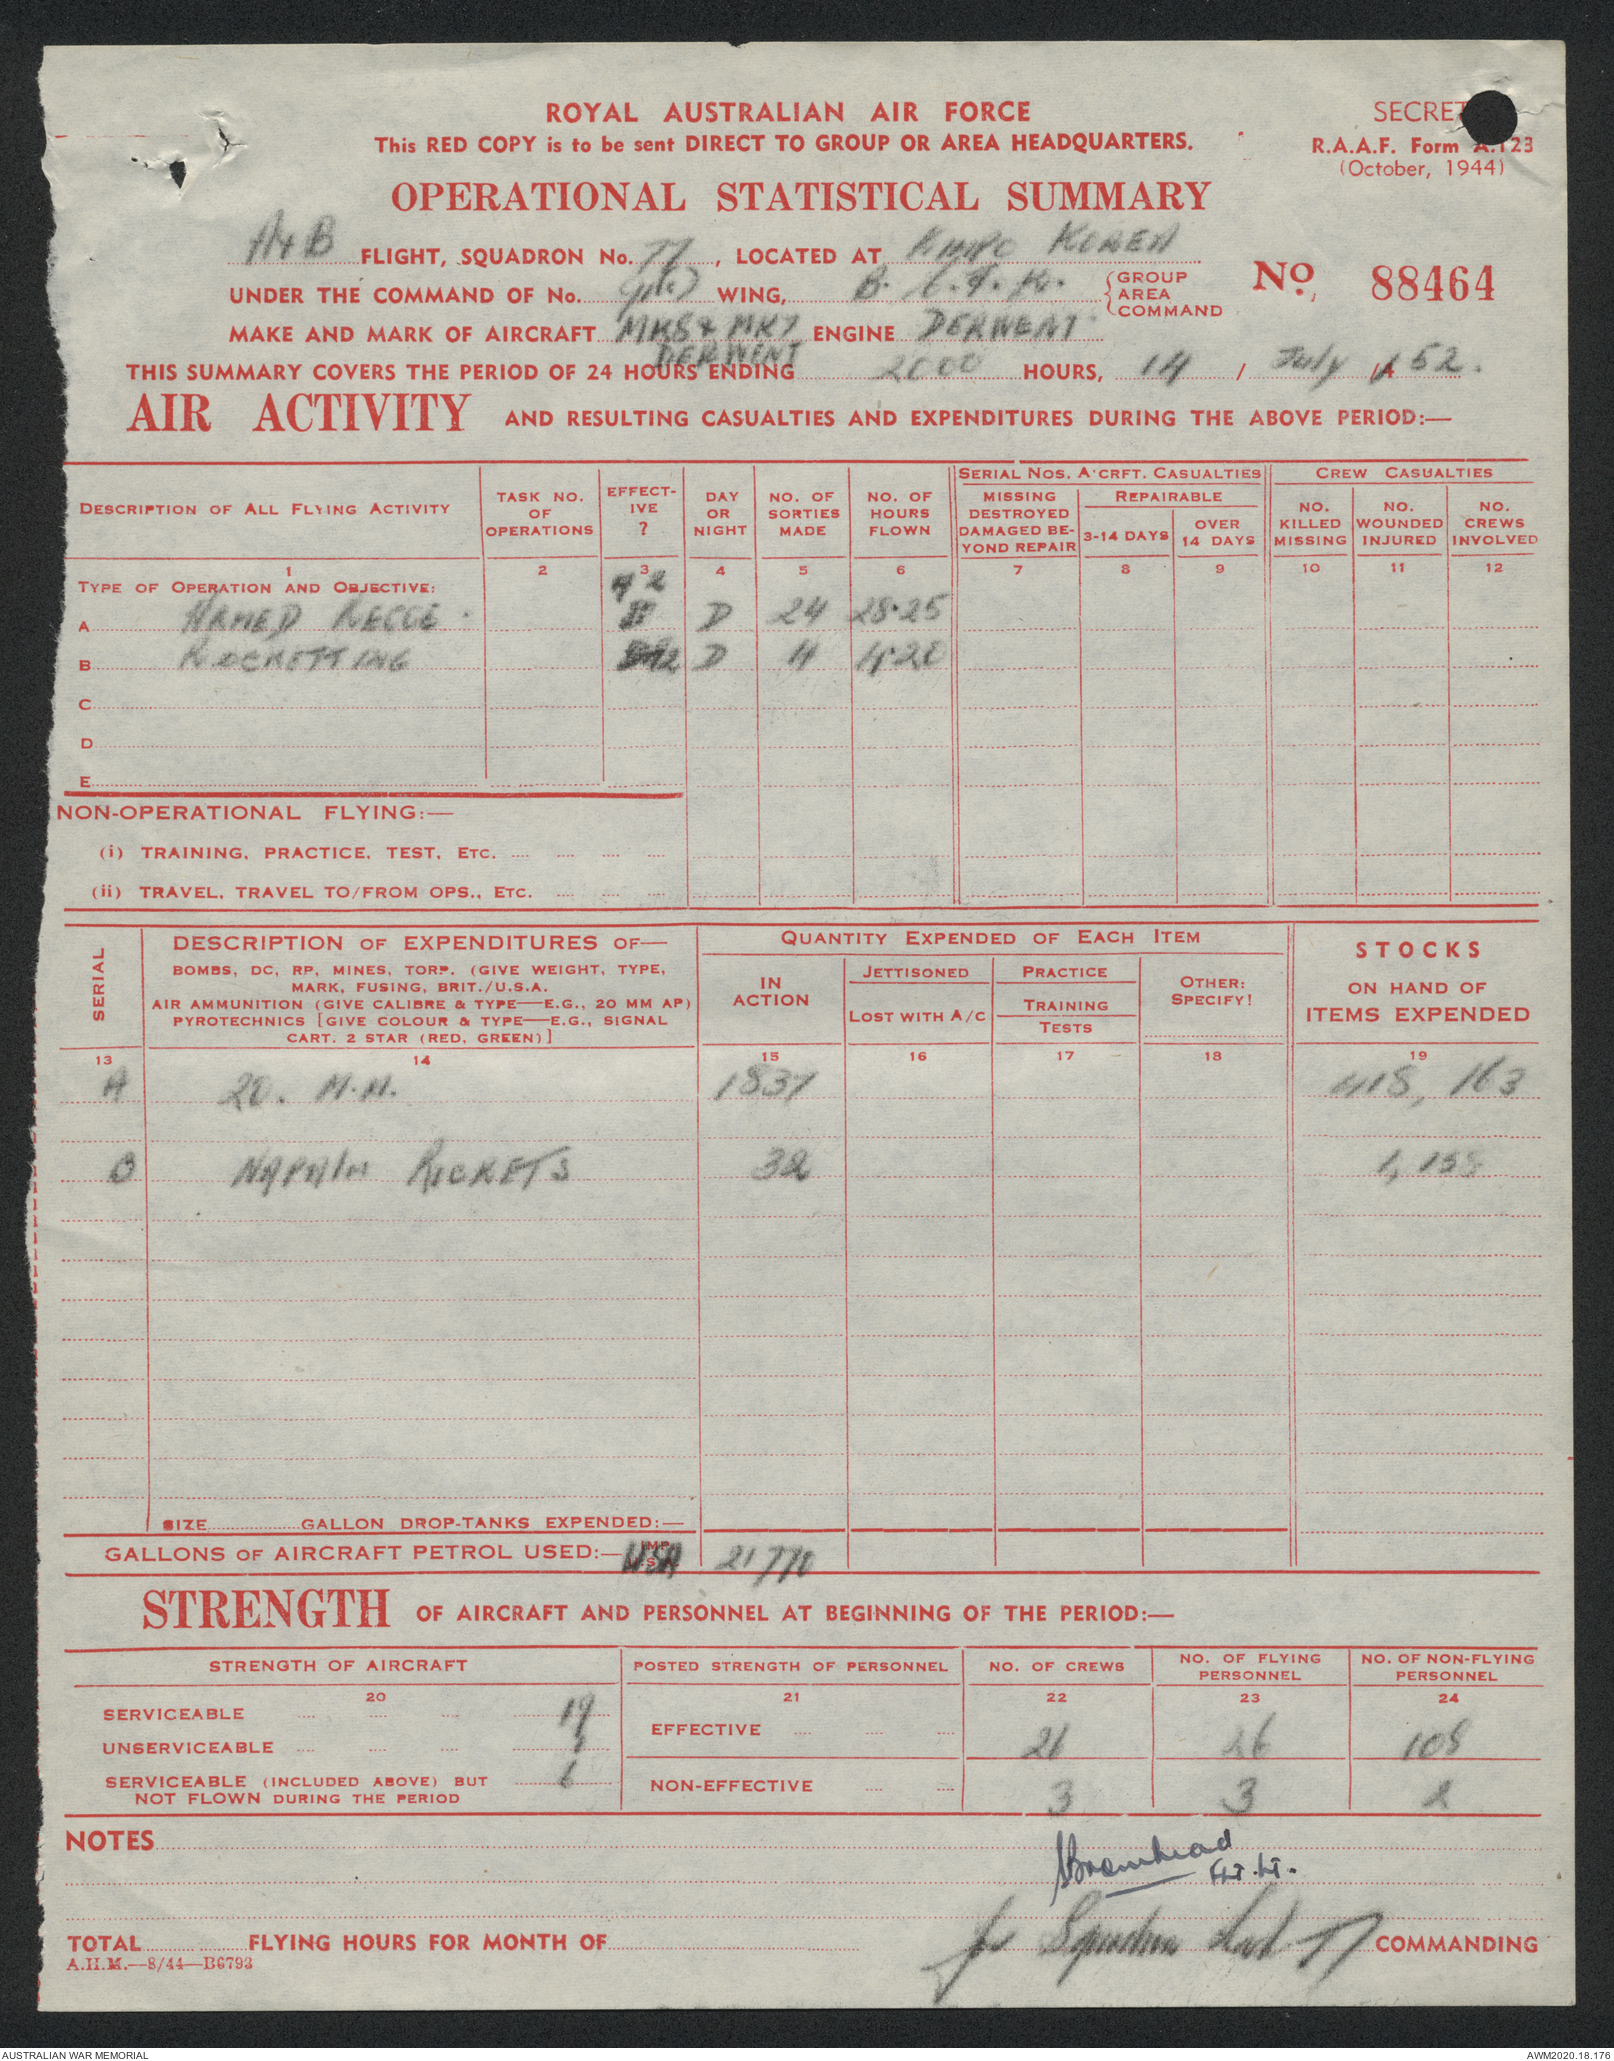 ROYAL AUSTRALIAN AIR FORCE
This RED COPY is to be sent DIRECT TO GROUP OR AREA HEADQUARTERS.
SECRET
R.A.A.F. Form A.123
(October, 1944)
OPERATIONAL STATISTICAL SUMMARY
A+B FLIGHT, SQUADRON No. 77, LOCATED AT KIMPO KOREA
UNDER THE COMMAND OF No. WING, B. C. F. K. GROUP AREA COMMAND
No. 88464
MAKE AND MARK OF AIRCRAFT MK8 & MK7 ENGINE DERWENT
DERWENT
THIS SUMMARY COVERS THE PERIOD OF 24 HOURS ENDING 2000 HOURS, 14 / July / 52.
AIR ACTIVITY AND RESULTING CASUALTIES AND EXPENDITURES DURING THE ABOVE PERIOD:—
SERIAL NOS. A'CRFT. CASUALTIES CREW CASUALTIES
DESCRIPTION OF ALL FLYING ACTIVITY
TASK NO. OF OPERATIONS
EFFECT-IVE ?
DAY OR NIGHT
NO. OF SORTIES MADE
NO. OF HOURS FLOWN
MISSING DESTROYED DAMAGED BE-YOND REPAIR
REPAIRABLE
3-14 DAYS
OVER 14 DAYS
NO. KILLED MISSING
NO. WOUNDED INJURED
NO. CREWS INVOLVED
1 2 3 4 5 6 7 8 9 10 11 12
TYPE OF OPERATION AND OBJECTIVE:
A ARMED RECCE. D 24 28.25
B ROCKETTING D 4 4.20
C
D
E
NON-OPERATIONAL FLYING:—
(i) TRAINING, PRACTICE, TEST, ETC.
(ii) TRAVEL, TRAVEL TO/FROM OPS., ETC.
SERIAL
DESCRIPTION OF EXPENDITURES OF—
BOMBS, DC, RP, MINES, TORP. (GIVE WEIGHT, TYPE,
MARK, FUSING, BRIT./U.S.A.
AIR AMMUNITION (GIVE CALIBRE & TYPE—E.G., 20 MM AP)
PYROTECHNICS [GIVE COLOUR & TYPE—E.G., SIGNAL
CART. 2 STAR (RED, GREEN)]
QUANTITY EXPENDED OF EACH ITEM
IN ACTION
JETTISONED
LOST WITH A/C
PRACTICE
TRAINING
TESTS
OTHER: SPECIFY!
STOCKS
ON HAND OF
ITEMS EXPENDED
13 14 15 16 17 18 19
A 20. M.M. 1837 418, 163
B NAPALM ROCKETS 32
SIZE GALLON DROP-TANKS EXPENDED:—
GALLONS OF AIRCRAFT PETROL USED:— IMP. U.S.A. USA 21770
STRENGTH OF AIRCRAFT AND PERSONNEL AT BEGINNING OF THE PERIOD:—
STRENGTH OF AIRCRAFT
POSTED STRENGTH OF PERSONNEL
NO. OF CREWS
NO. OF FLYING PERSONNEL
NO. OF NON-FLYING PERSONNEL
20 21 22 23 24
SERVICEABLE 19
EFFECTIVE 26 26 108
UNSERVICEABLE
SERVICEABLE (INCLUDED ABOVE) BUT
NOT FLOWN DURING THE PERIOD
NON-EFFECTIVE 3 3 2
NOTES
Bromhead
FLT. LT.
for Squadron Ldr 77 COMMANDING
TOTAL FLYING HOURS FOR MONTH OF
A.H.M.—8/44—B6793
AUSTRALIAN WAR MEMORIAL
AWM2020.18.176